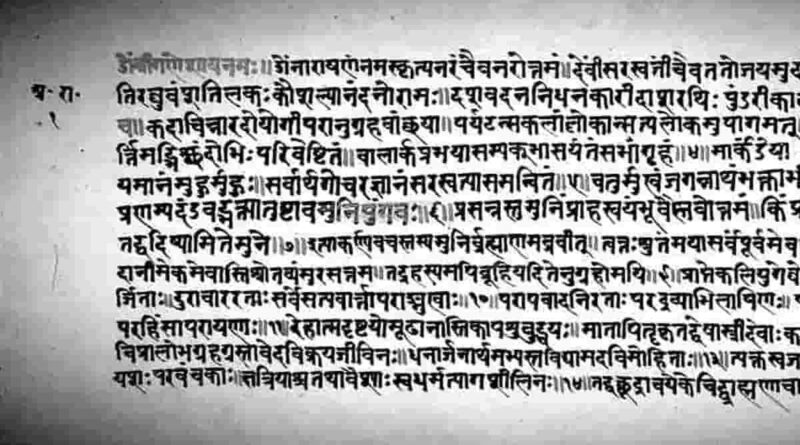 ॐश्रीगणेशायनमः॥ॐनारायणंनमस्कृत्यनरंचैवनरोत्तमं॥देवींसरस्वतींचैवततोजयमु
अ॰ रा॰
तिरघुवंशतिलकःकौशल्यानंदनोरामः॥दशवदननिधनकारीदाशरथिःपुंडरीका
१
॥कदाचिन्नारदोयोगीपरानुग्रहवांछया॥पर्यटन्सकलांलोकान्सत्यलोकमुपागमत्
र्त्तिमद्भिश्छंदोभिःपरिवेष्टितं॥वालार्कप्रभयासम्यक्भासयंतंसभागृहं॥४॥मार्कंडेया
यमानंमुहुर्मुहुः॥सर्वार्थगोचरज्ञानंसरस्वत्यासमन्वितं॥५॥चतुर्मुखंजगन्नाथंभक्ताभी
प्रणम्यदंडवद्भक्त्यातुष्टावमुनिपुंगवः॥६॥प्रसन्नस्तंमुनिंप्राहस्वयंभूर्वैस्नवोत्तमं॥किंप्र
तद्वदिष्यामितेमुने॥७॥इत्याकर्ण्यवचस्तस्यमुनिर्ब्रह्माणमब्रवीत्॥त्वत्तःश्रुतंमयासर्वंपूर्वमेव
दानीमेकमेवास्तिश्रोतव्यंसुरसत्तम॥तद्रहस्यमपिब्रूहियदितेनुग्रहोमयि॥९॥प्राप्तेकलियुगेघो
र्जिताः॥दुराचाररताःसर्वेसत्यवार्त्तापराङ्मुखाः॥१०॥परापवादनिरताःपरद्रव्याभिलाषिणः॥
परहिंसापरायणाः॥११॥देहात्मदृष्टयोमूढानास्तिकापशुबुद्धयः॥मातापितृकृतद्वेषास्त्रीदेवाःका
विप्रालोभग्रहग्रस्तावेदविक्रयजीविनः॥धनार्जनार्थमभ्यस्तविद्यामदविमोहिताः॥१३॥त्यक्तस्वजा
यशःपरवंचकाः॥क्षत्रियाश्चतथावैश्याःस्वधर्मत्यागशीलिनः॥१४॥तद्वच्छूद्राश्चयेकेचिद्ब्राह्मणचा